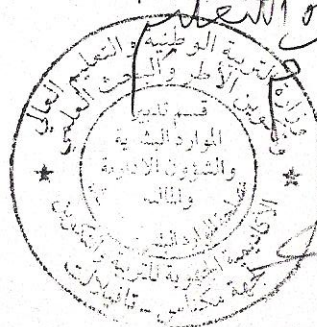 والتعليم
وزارة التربية الوطنية والتعليم العالي
وتكوين الأطر والبحث العلمي
قسم تدبير
الموارد البشرية
والشؤون الإدارية
والمالية
الأكاديمية الجهوية للتربية والتكوين
جهة مكناس - تافيلالت